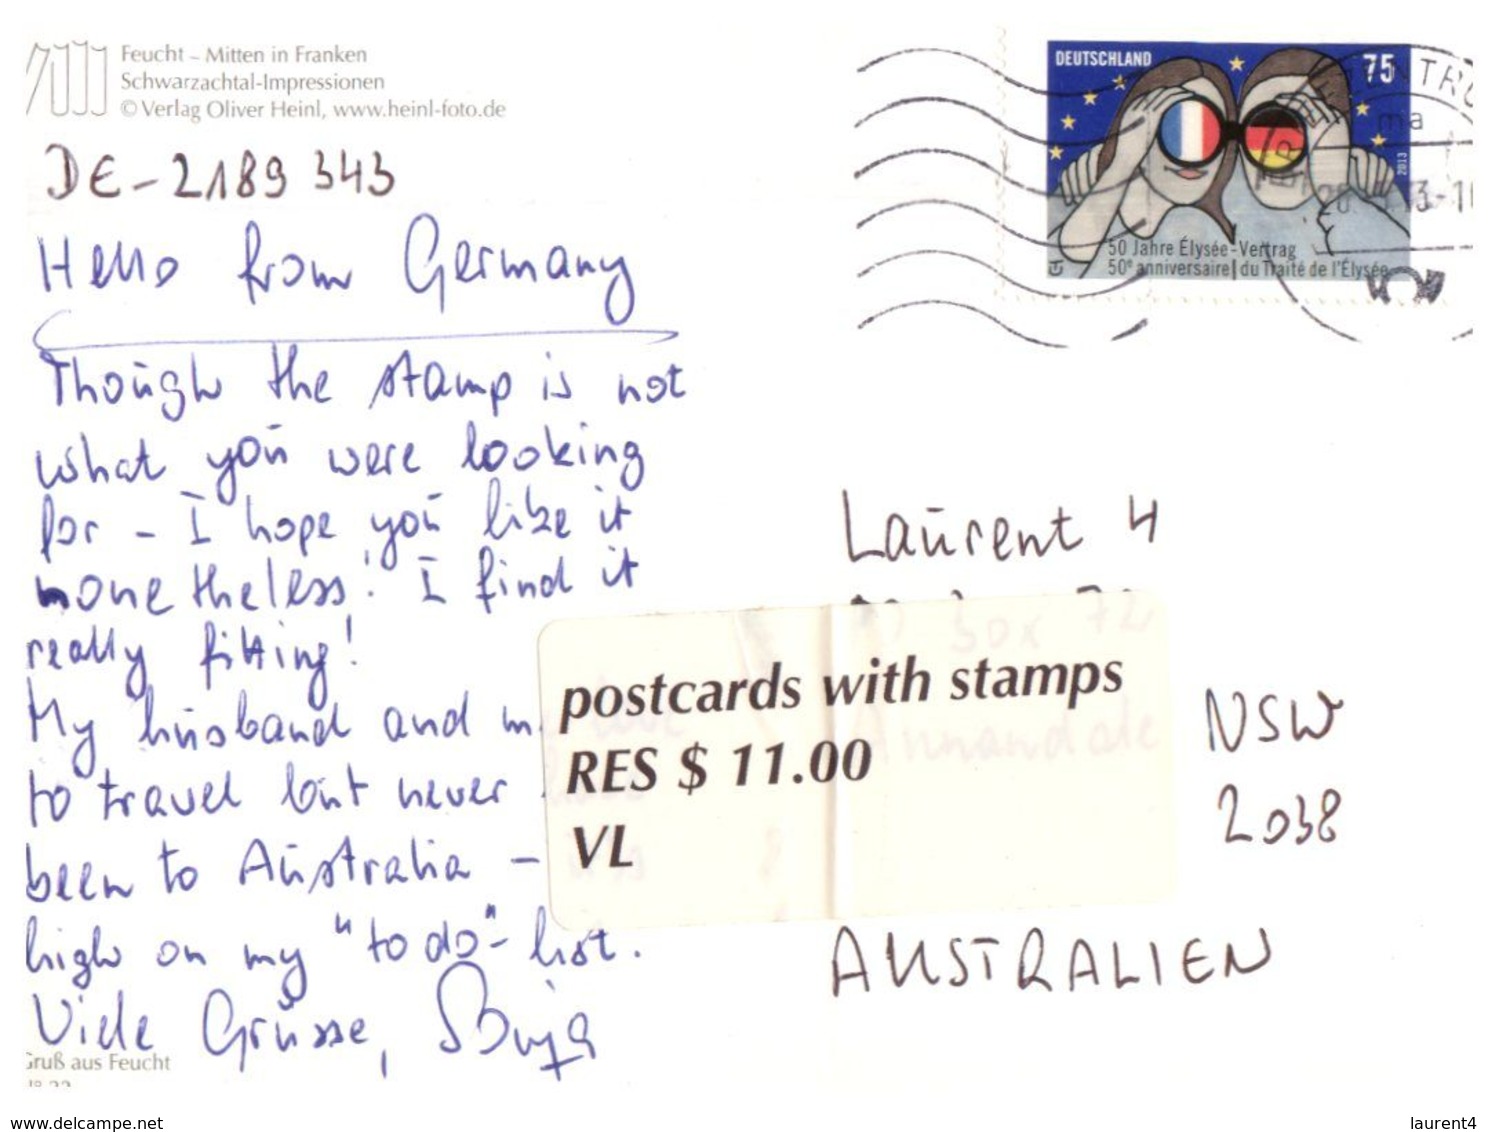 Feucht – Mitten in Franken
Schwarzachtal-Impressionen
© Verlag Oliver Heinl, www.heinl-foto.de
DE-2189343
Hello from Germany
Though the stamp is not
what you were looking
for - I hope you like it
nonetheless! I find it
really fitting!
My husband and me love
to travel but never
been to Australia -
high on my "to do"- list.
Viele Grüsse,
Gruß aus Feucht
DEUTSCHLAND
75
2013
50 Jahre Élysée-Vertrag
50e anniversaire du Traité de l'Élysée
BRIEFZENTRUM
Laurent 4
PO Box 72
Annandale NSW
2038
AUSTRALIEN
postcards with stamps
RES $ 11.00
VL
www.delcampe.net
laurent4